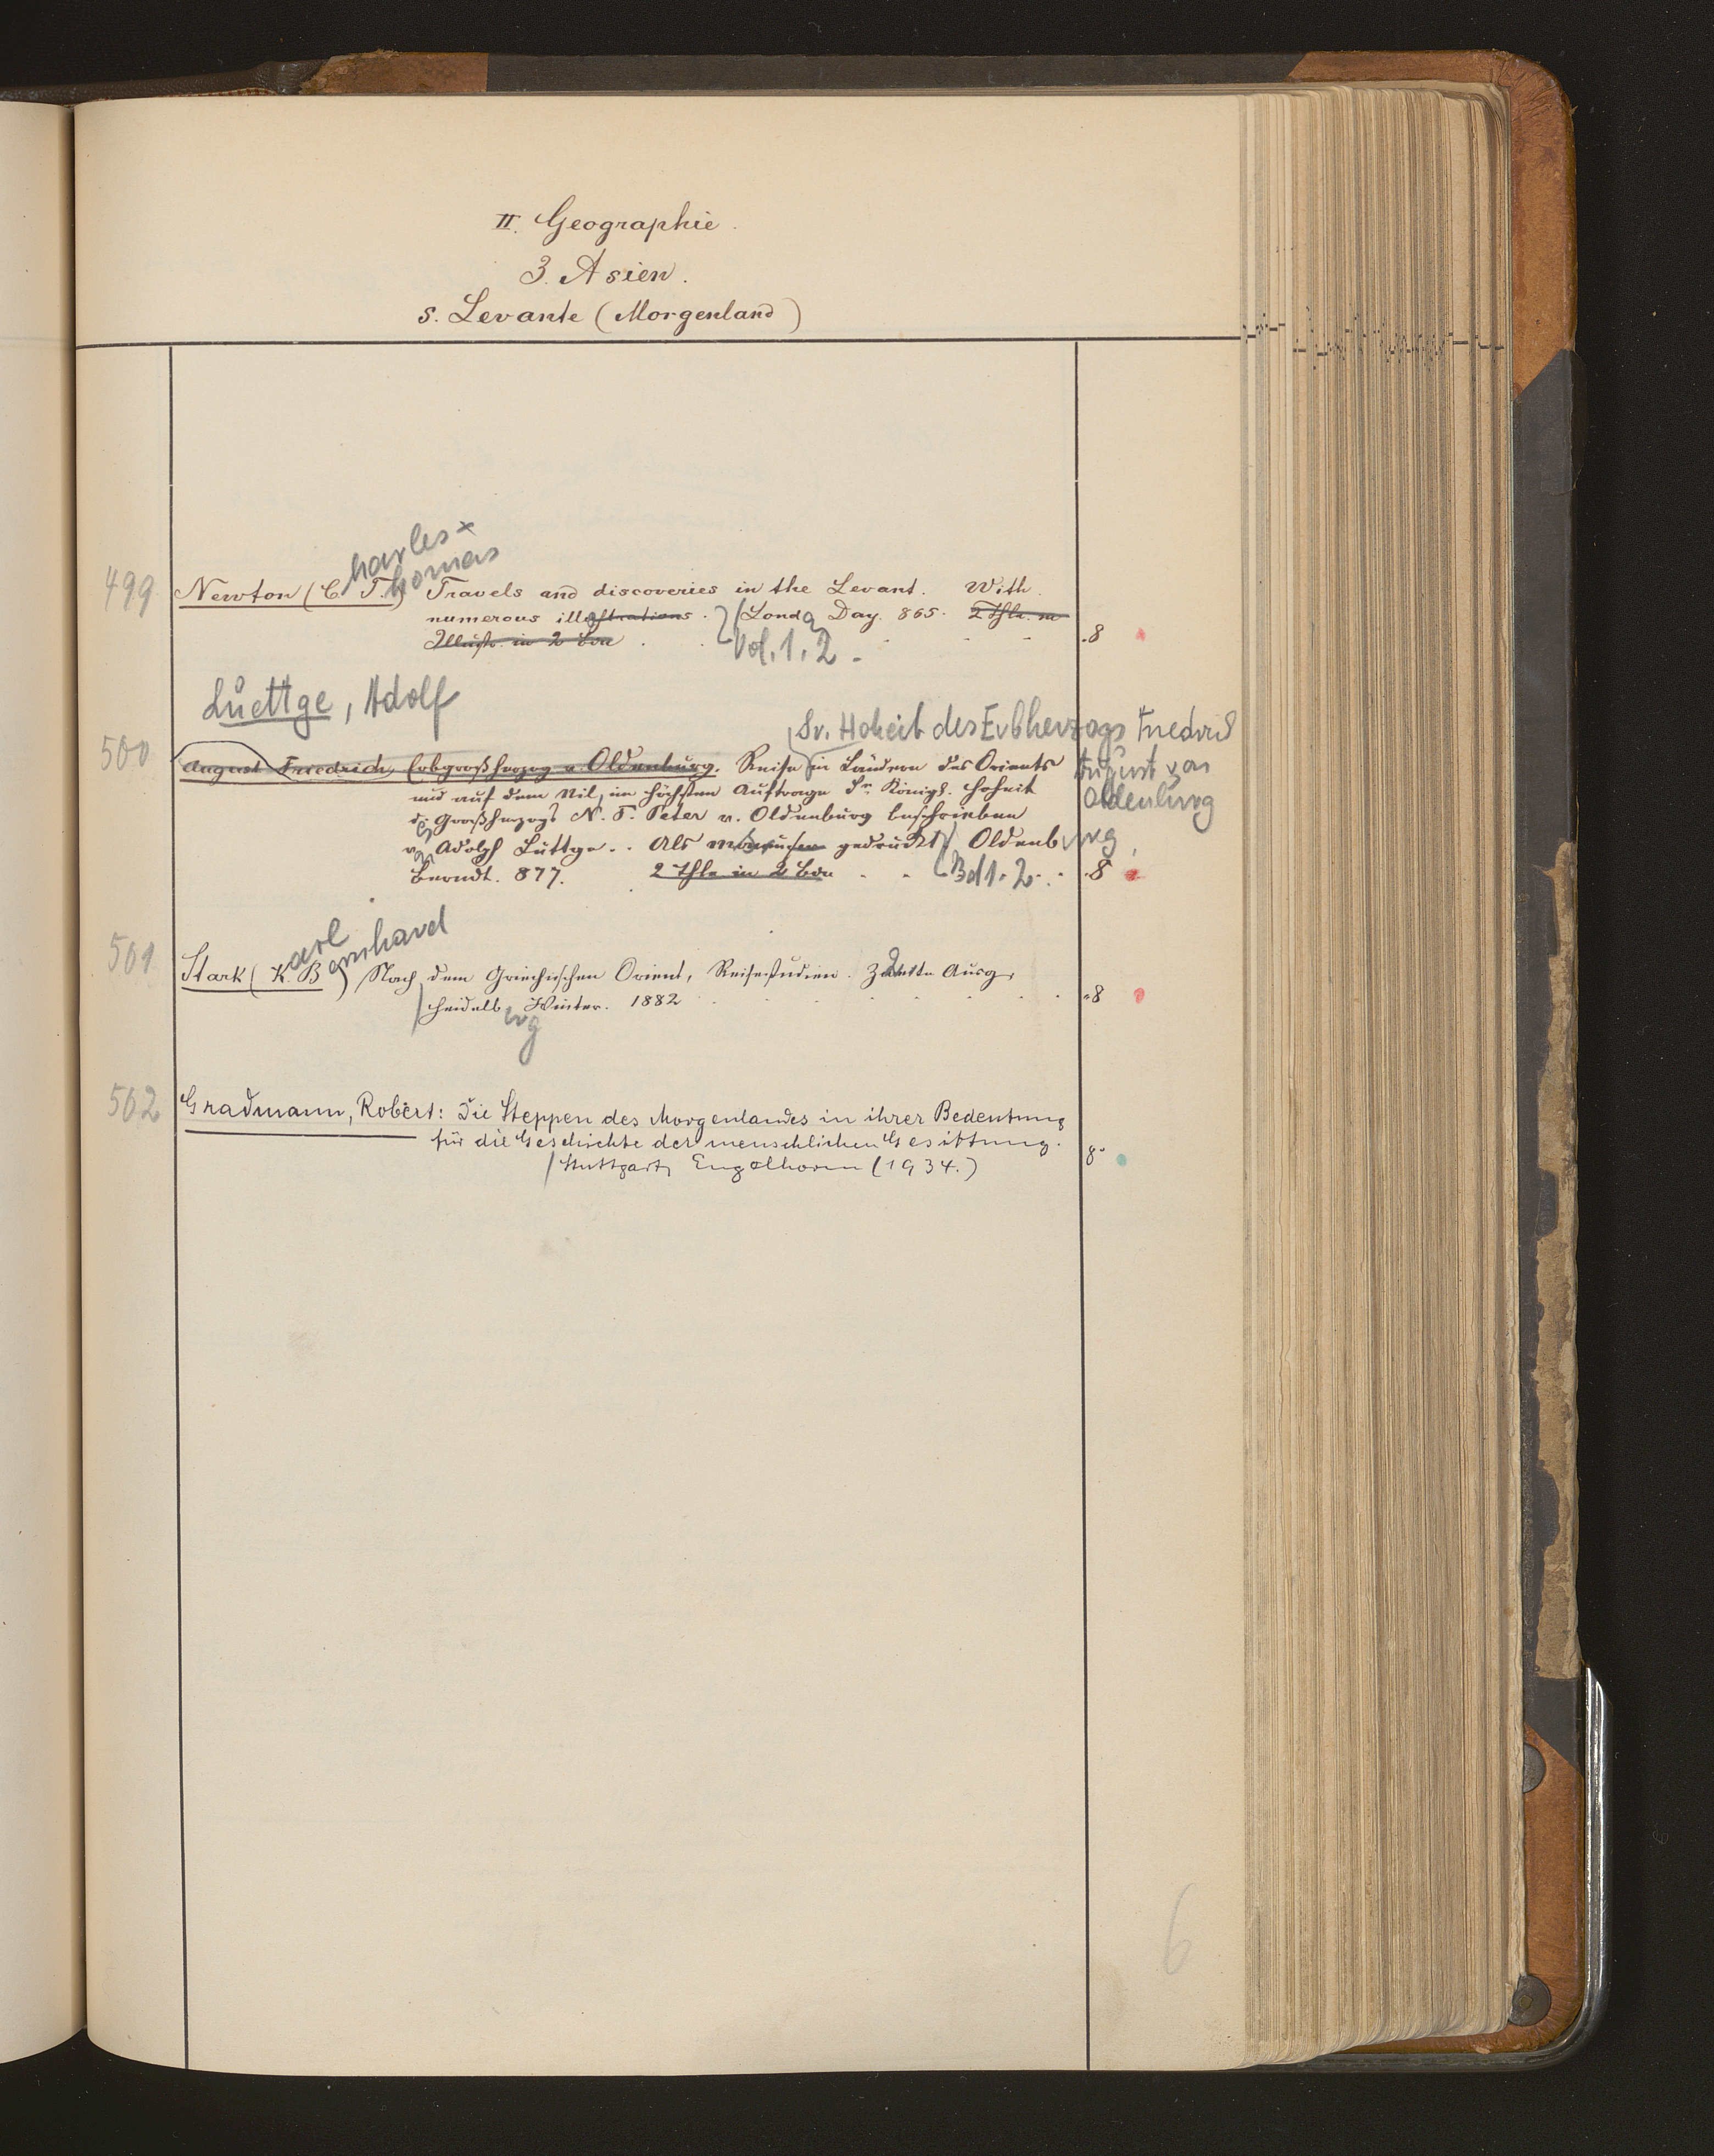 II. Geographie.
3. Asien.
s. Levante (Morgenland)
harles x
homas
499 Newton (C. T.) Travels and discoveries in the Levant. With
numerous illustrations. Lond Day. 865. 2 Thle. m
Illustr. in 2 Bdn .8
Vol. 1. 2.
Luettge, Adolf
Sr. Hoheit des Erbherzogs Friedrich
500 August Friedrich, Erbgroßherzog v. Oldenburg. Reise in Ländern des Orients August von
und auf dem Nil, im höchsten Auftrage Sr. Königl. Hoheit Oldenburg
d. Großherzogs N. F. Peter v. Oldenburg beschrieben
v. Adolph Lüttge. Als gedruckt Oldenburg,
Berndt. 877. 2 Thle in 2 Bdn Bd 1. 2. .8
arl
ernhard
501 Stark (K. B) Nach dem Griechischen Orient, Reisestudien. 2 Ausg.
Heidelb Winter. 1882 .8
erg
502 Gradmann, Robert: Die Steppen des Morgenlandes in ihrer Bedeutung
für die Geschichte der menschlichen Gesittung.
Stuttgart, Engelhorn (1934.) 8°
6